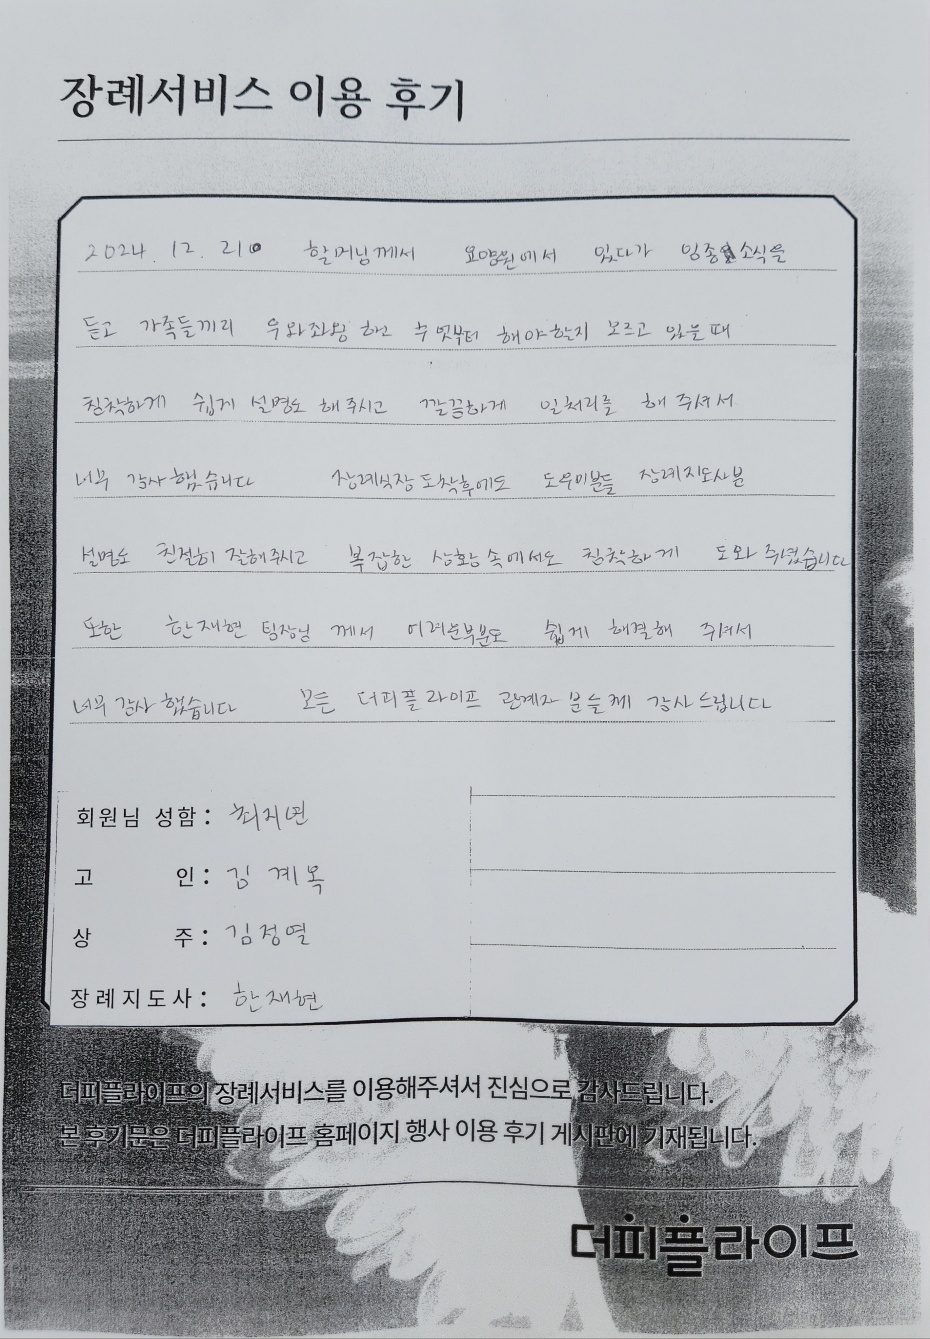 장례서비스 이용 후기
2024. 12. 21 할머님께서 요양원에서 있다가 임종 소식을
듣고 가족들끼리 우와좌왕 하고 무엇부터 해야할지 모르고 있을때
침착하게 쉽게 설명도 해주시고 깔끔하게 일처리를 해주셔서
너무 감사했습니다 장례식장 도착후에도 도우미분들 장례지도사분
설명도 친절히 잘해주시고 복잡한 상황속에서도 침착하게 도와주셨습니다
또한 한재현 팀장님 께서 어려운부분도 쉽게 해결해 주셔서
너무 감사했습니다 모든 더피플라이프 관계자 분들께 감사드립니다
회원님 성함 : 최지연
고 인 : 김계옥
상 주 : 김정열
장례지도사 : 한재현
더피플라이프의 장례서비스를 이용해주셔서 진심으로 감사드립니다.
본 후기문은 더피플라이프 홈페이지 행사 이용 후기 게시판에 기재됩니다.
더피플라이프